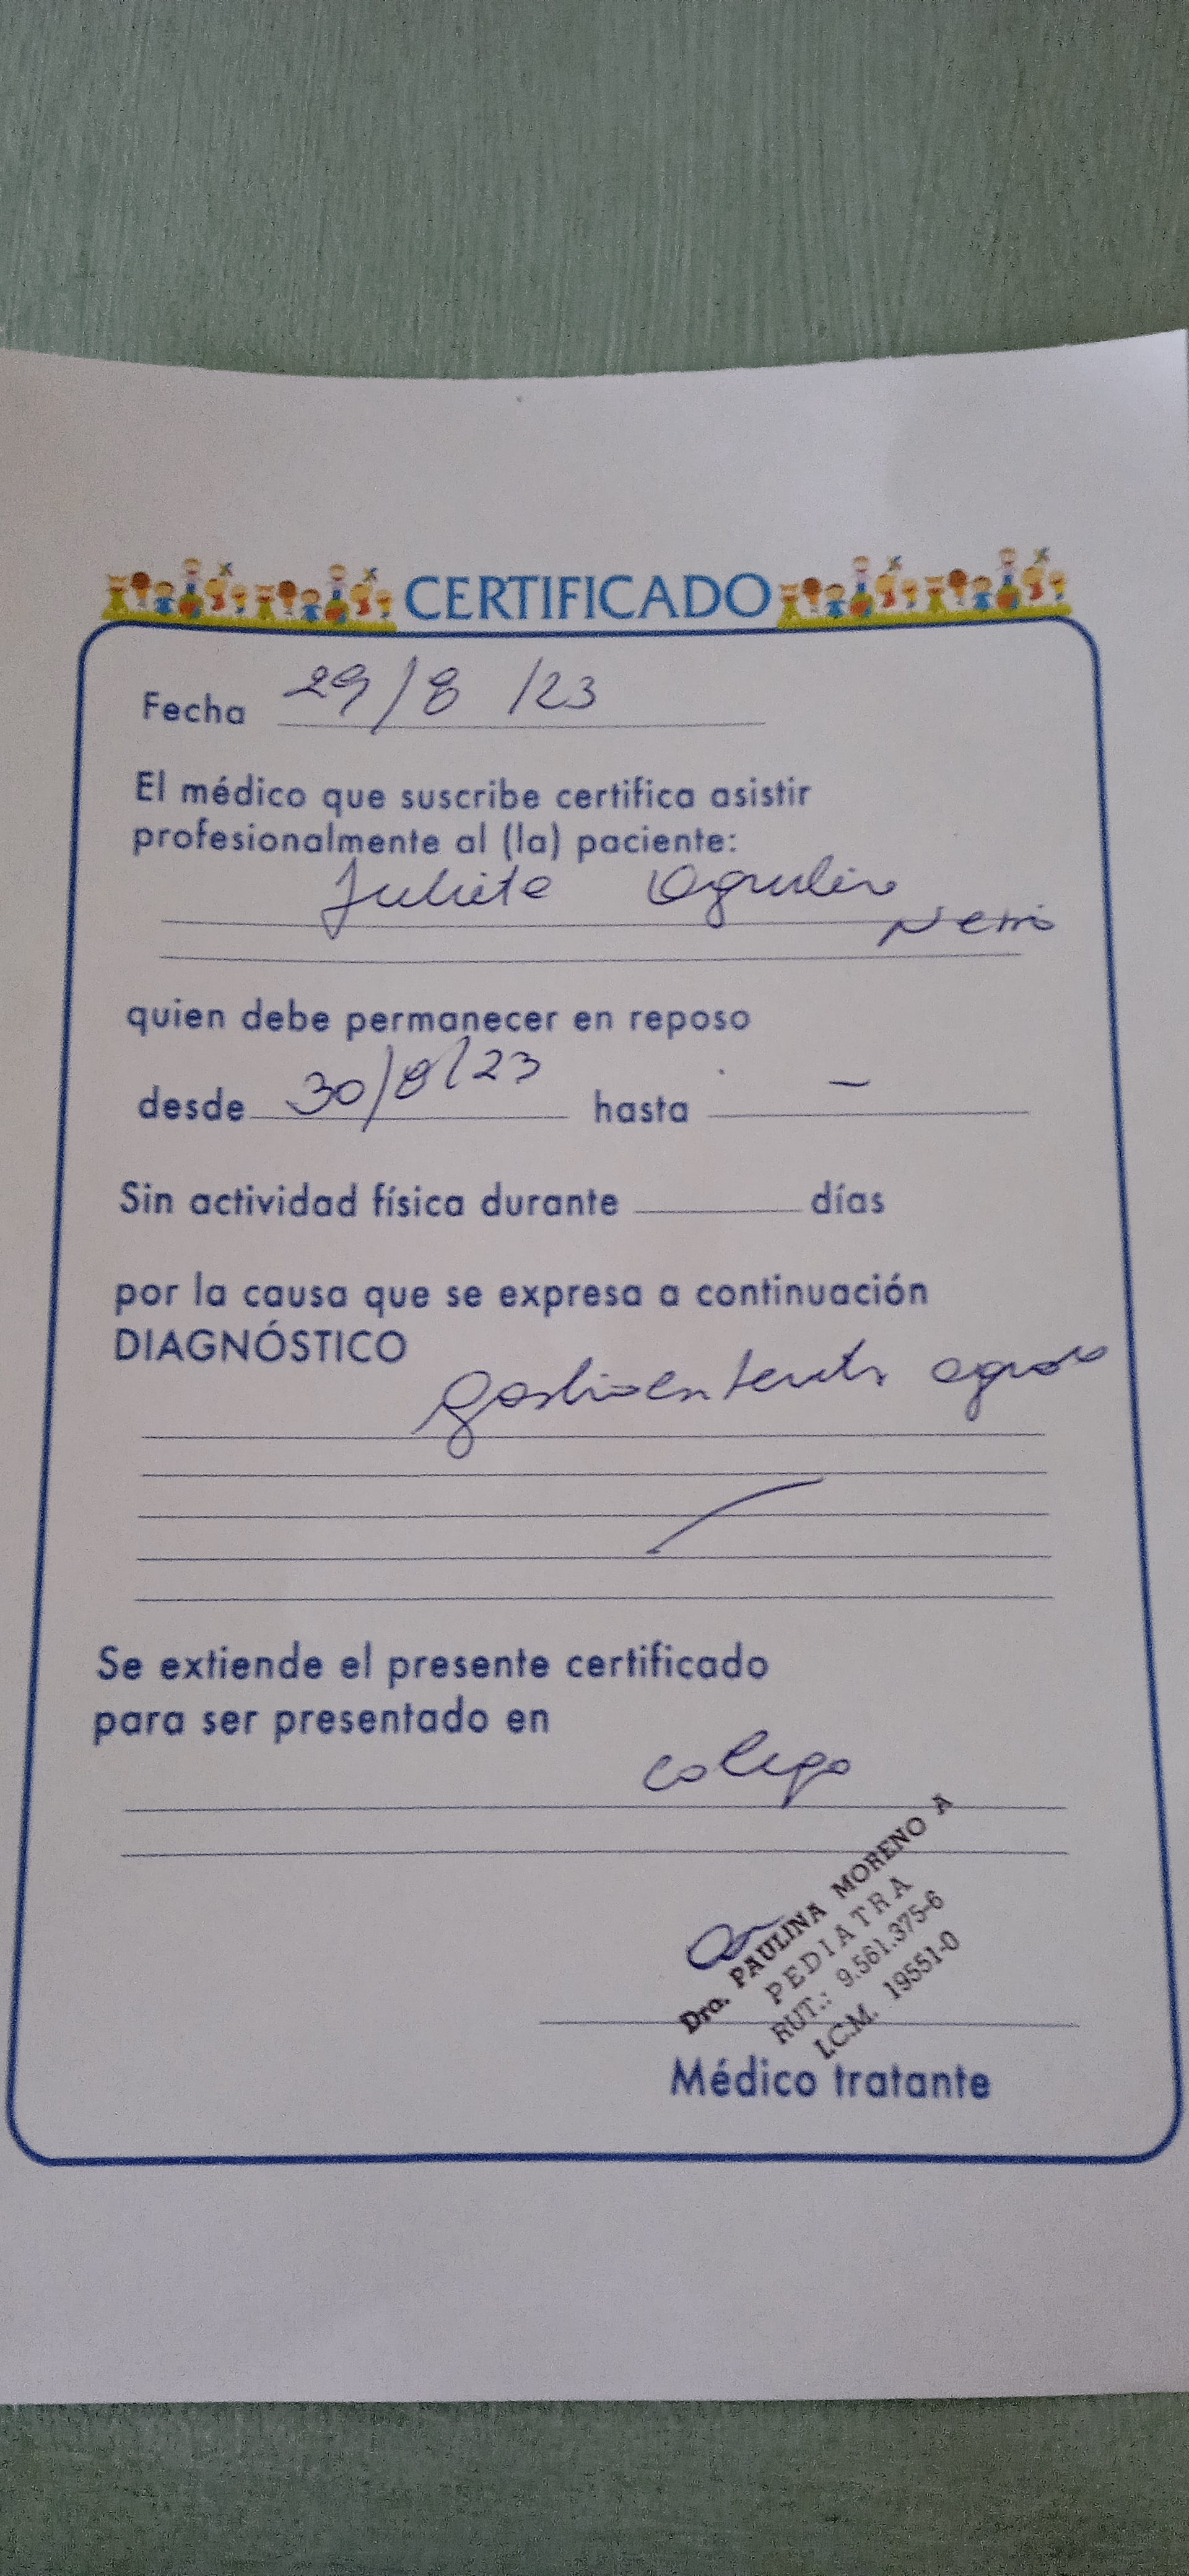 CERTIFICADO
Fecha 29/8/23
El médico que suscribe certifica asistir
profesionalmente al (la) paciente:
Julieta
quien debe permanecer en reposo
desde 30/8/23 hasta —
Sin actividad física durante días
por la causa que se expresa a continuación
DIAGNÓSTICO
gastroenteritis aguda
Se extiende el presente certificado
para ser presentado en
colegio
Dra. PAULINA MORENO A
PEDIATRA
RUT.: 9.561.375-6
I.C.M. 19551-0
Médico tratante